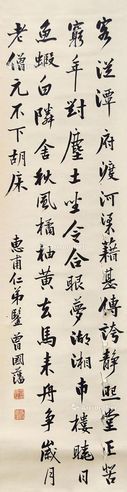 客從潭府渡河梁籍甚傳誇靜照堂正苦
窮年對塵土坐令合眼夢湖湘市樓曉日
魚鰕白隣舍秋風橘柚黃去馬來舟爭歲月
老僧元不下胡床
惠甫仁弟鑒 曾國藩